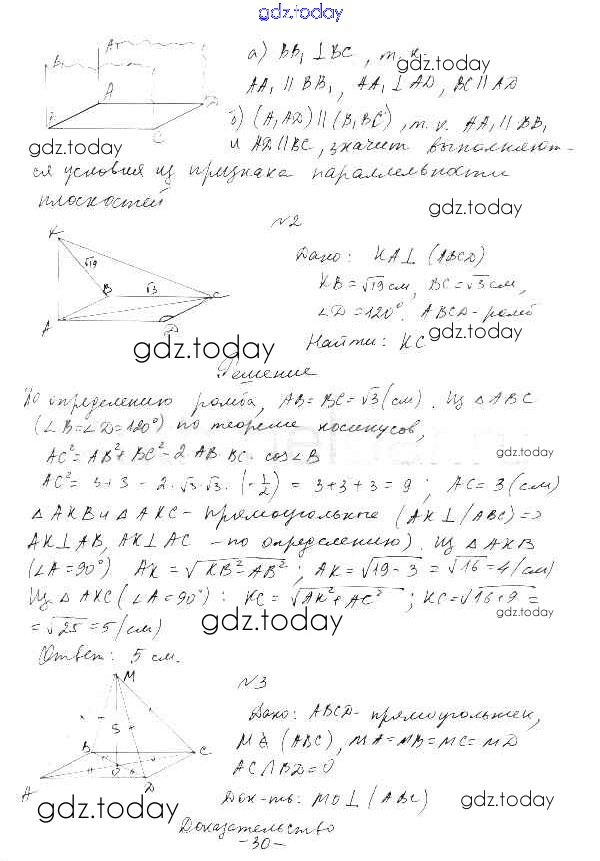 gdz.today
а) BB₁ ⊥ BC, т. к.
gdz.today
AA₁ ∥ BB₁, AA₁ ⊥ AD, BC ∥ AD
б) (A₁AD) ∥ (B₁BC), т. к. AA₁ ∥ BB₁
gdz.today
и AD ∥ BC, значит выполняют-
ся условия из признака параллельности
плоскостей
gdz.today
N2
Дано: KA ⊥ (ABCD)
KB = √19 см, BC = √3 см,
∠D = 120°. ABCD - ромб
gdz.today
Найти: KC
gdz.today
Решение
По определению ромба, AB = BC = √3 (см). Из △ABC
(∠B = ∠D = 120°) по теореме косинусов,
AC² = AB² + BC² - 2 AB · BC · cos∠B
gdz.today
AC² = 3 + 3 - 2 · √3 · √3 · (-1/2) = 3 + 3 + 3 = 9; AC = 3 (см)
△AKB и △AKC - прямоугольные (AK ⊥ (ABC) ⇒
AK ⊥ AB, AK ⊥ AC - по определению). Из △AKB
gdz.today
(∠A = 90°) AK = √KB² - AB²; AK = √19 - 3 = √16 = 4 (см)
Из △AKC (∠A = 90°): KC = √AK² + AC²; KC = √16 + 9 =
= √25 = 5 (см)
gdz.today
Ответ: 5 см.
N3
Дано: ABCD - прямоугольник,
M ∉ (ABC), MA = MB = MC = MD
AC ∩ BD = O
Док-ть: MO ⊥ (ABC)
gdz.today
gdz.today
Доказательство
-30-
A₁
B₁
A
D
B
C
K
√19
B
√3
C
A
D
M
S
B
C
A
O
D